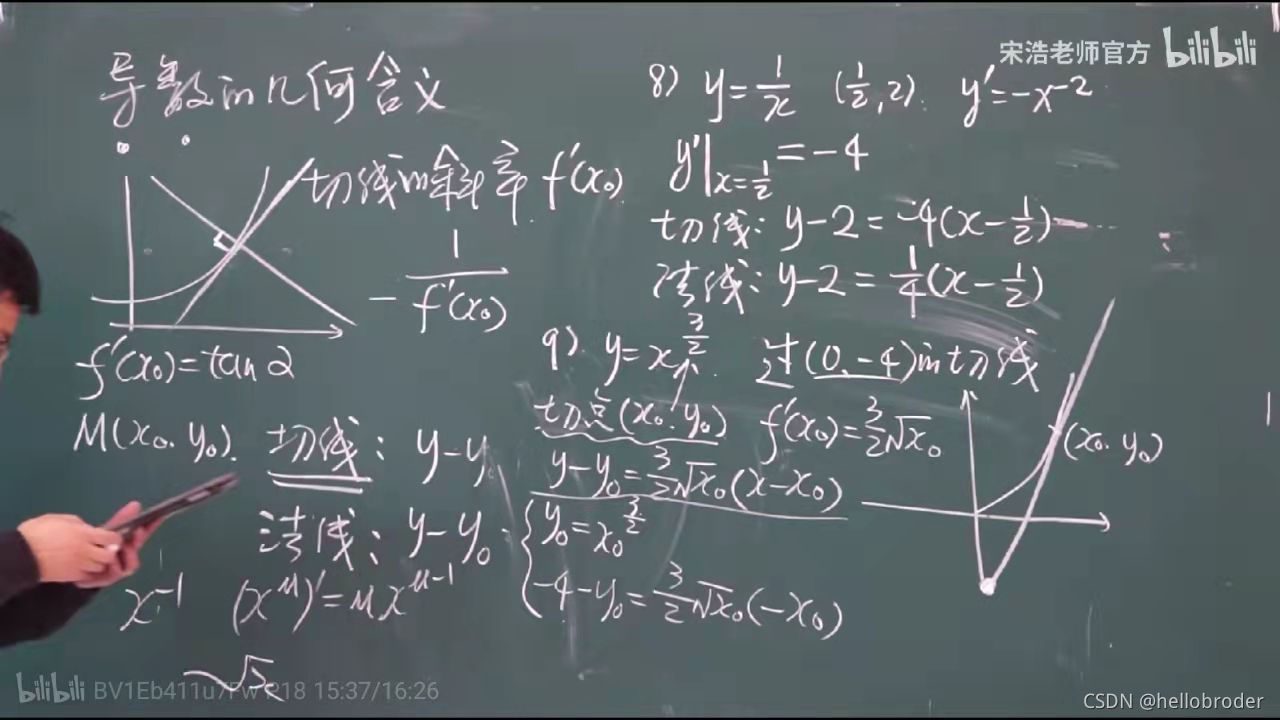 宋浩老师官方 bilibili
导数的几何含义
切线的斜率 f'(x₀)
-1/f'(x₀)
f'(x₀)=tan α
M(x₀. y₀).
切线: y-y
法线: y-y₀
x⁻¹ (x^μ)'=μx^(μ-1)
8) y=1/x (1/2, 2). y'=-x⁻²
y'|x=1/2 =-4
切线: y-2=-4(x-1/2)
法线: y-2=1/4(x-1/2)
9). y=x^(3/2). 过(0.-4)的切线
切点(x₀. y₀) f'(x₀)=3/2√x₀
y-y₀=3/2√x₀(x-x₀)
y₀=x₀^(3/2)
-4-y₀=3/2√x₀(-x₀)
(x₀. y₀)
bilibili BV1Eb411u7Fw P18 15:37/16:26
CSDN @hellobroder